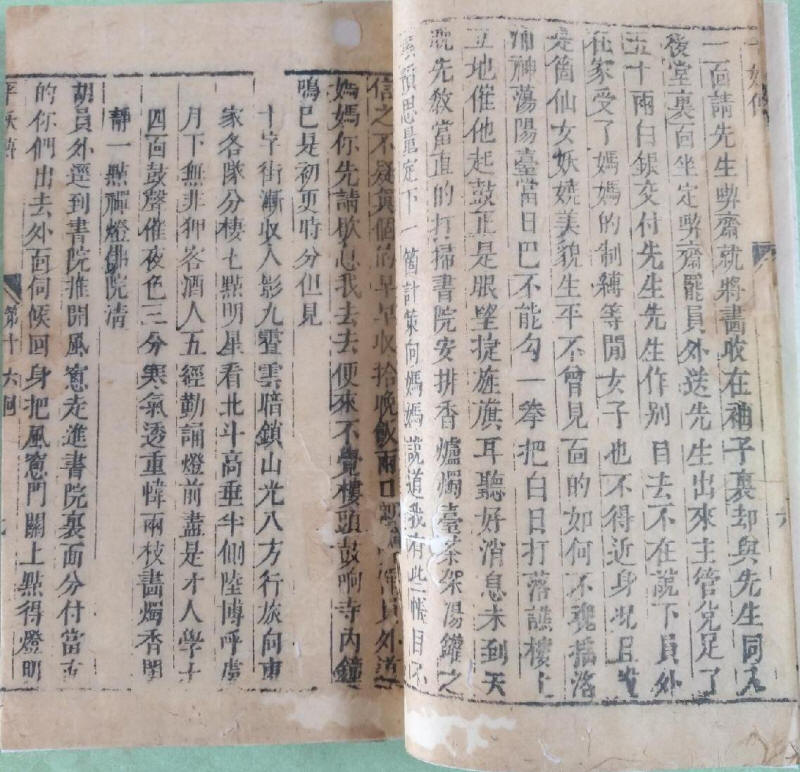 一面請先生獘齋就將畵收在袖子裏却與先生同入
後堂裏面坐定獘齋罷員外送先生出來主管兌足了
五十兩白銀交付先生先生作别自去不在說下員外
在家受了媽媽的制縛等閒女子也不得近身况且
是箇仙女妖嬈美貌生平不曾見面的如何不魂揺
神蕩陽臺當日巴不能勾一拳把白日打落譙樓上
立地催他起鼓正是眼望旌旗耳聽好消息未到天
先敎當直的打掃書院安排香爐燭臺茶架湯鑵之
預思量定下一箇計策向媽媽說道我有些帳目不
信之不疑眞個的早早收拾晚飯兩口員外道
媽媽你先請歇息我去去便來不覺樓頭鼓响寺内鐘
鳴已是初更時分但見
十字街漸收人影九霄雲暗鎖山光八方行旅向東
家各隊分棲七點明星看北斗高垂半側陸博呼盧
月下無非狎客酒人五經勤誦燈前盡是才人學士
四面鼓聲催夜色三分寒氣透重幃兩枝畵燭香閨
靜一點禪燈佛院清
胡員外逕到書院推開風窓走進書院裏面分付當直
的你們出去外面伺候回身把風窓門關上點得燈明
平妖傳
第十六囘